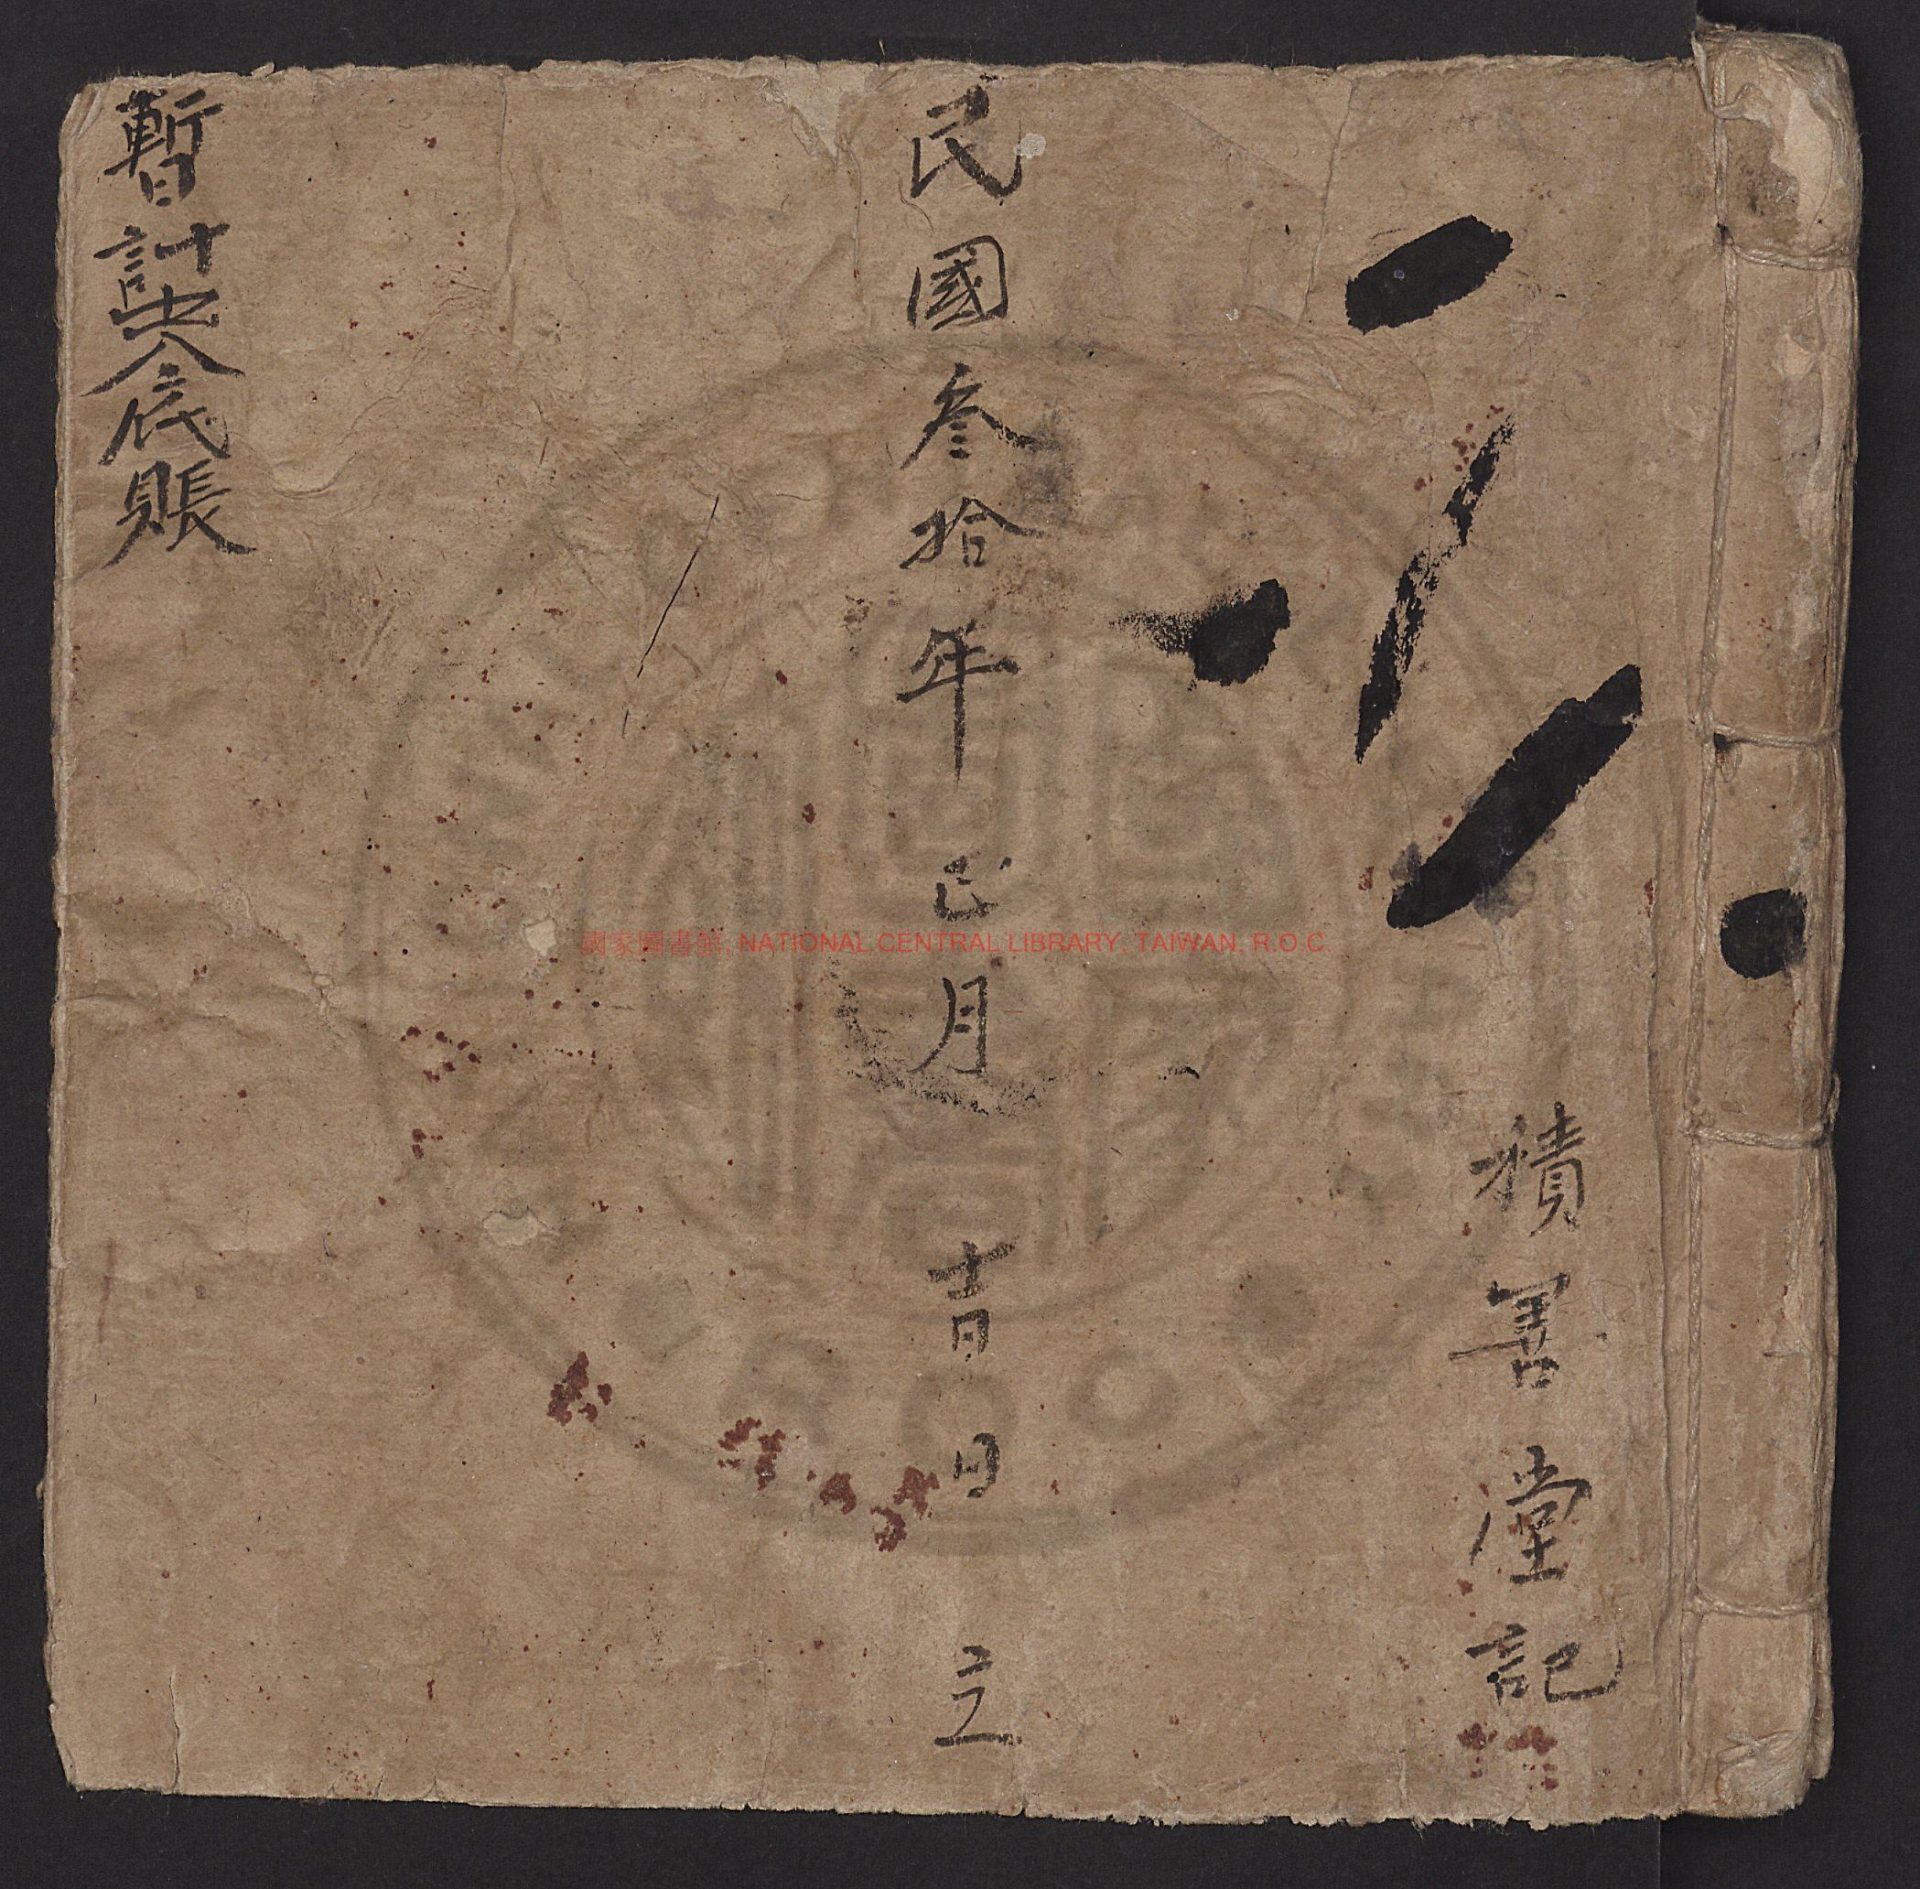 積善堂記
民國叁拾年巳月吉日立
暫計底賬
國家圖書館, NATIONAL CENTRAL LIBRARY, TAIWAN, R.O.C.